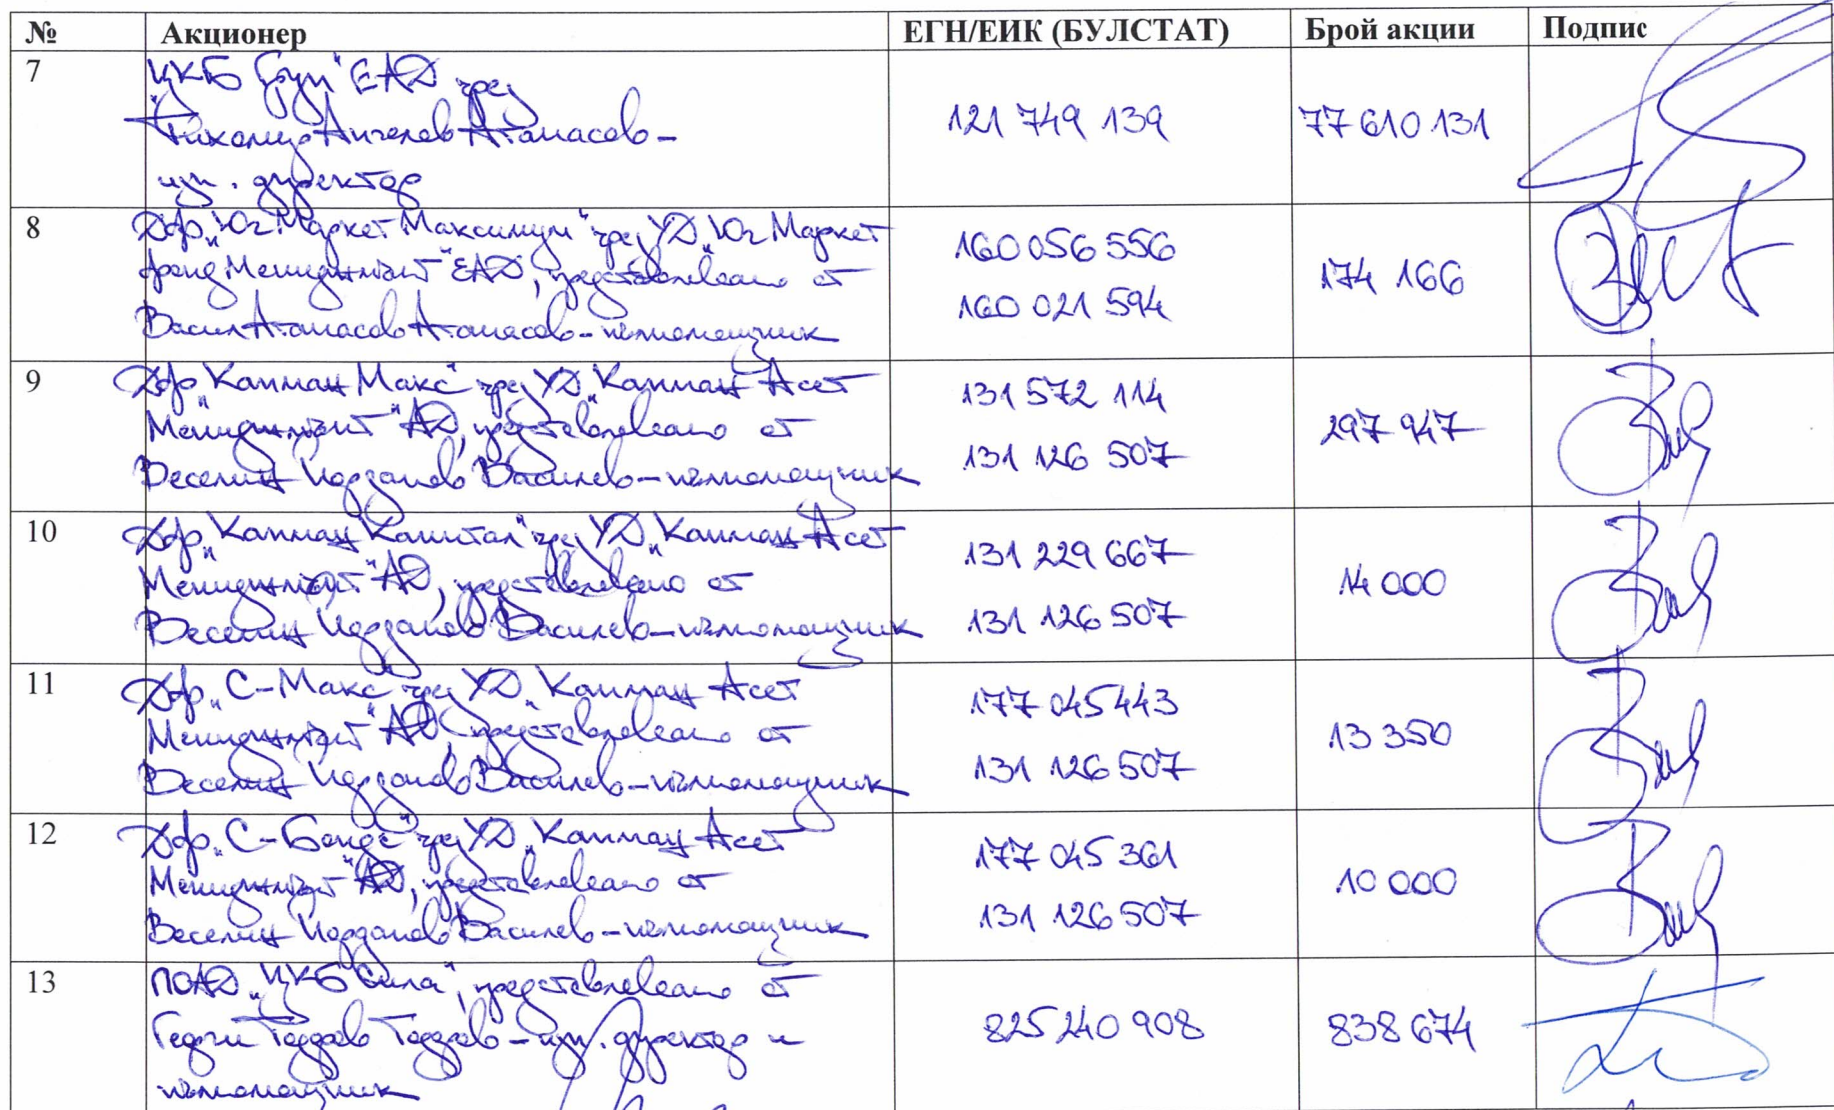 № Акционер ЕГН/ЕИК (БУЛСТАТ) Брой акции Подпис
7 „ЦКБ Груп" ЕАД чрез
Николиус Ангелов Атанасов -
изп. директор
121 749 139
77 610 131
8 ДФ „Юг Маркет Максимум" чрез УД „Юг Маркет
Фонд Мениджмънт" ЕАД, представлявано от
Васил Атанасов Атанасов - пълномощник
160 056 556
160 021 594
174 166
9 ДФ „Капман Макс" чрез УД „Капман Асет
Мениджмънт" АД, представлявано от
Веселин Йорданов Василев - пълномощник
131 572 114
131 126 507
297 947
10 ДФ „Капман Капитал" чрез УД „Капман Асет
Мениджмънт" АД, представлявано от
Веселин Йорданов Василев - пълномощник
131 229 667
131 126 507
14 000
11 ДФ „С-Макс" чрез УД „Капман Асет
Мениджмънт" АД, представлявано от
Веселин Йорданов Василев - пълномощник
177 045 443
131 126 507
13 350
12 ДФ „С-Бондс" чрез УД „Капман Асет
Мениджмънт" АД, представлявано от
Веселин Йорданов Василев - пълномощник
177 045 361
131 126 507
10 000
13 ПОАД „ЦКБ Сила", представлявано от
Георги Тодоров Тодоров - изп. директор и
пълномощник
825 240 908
838 674